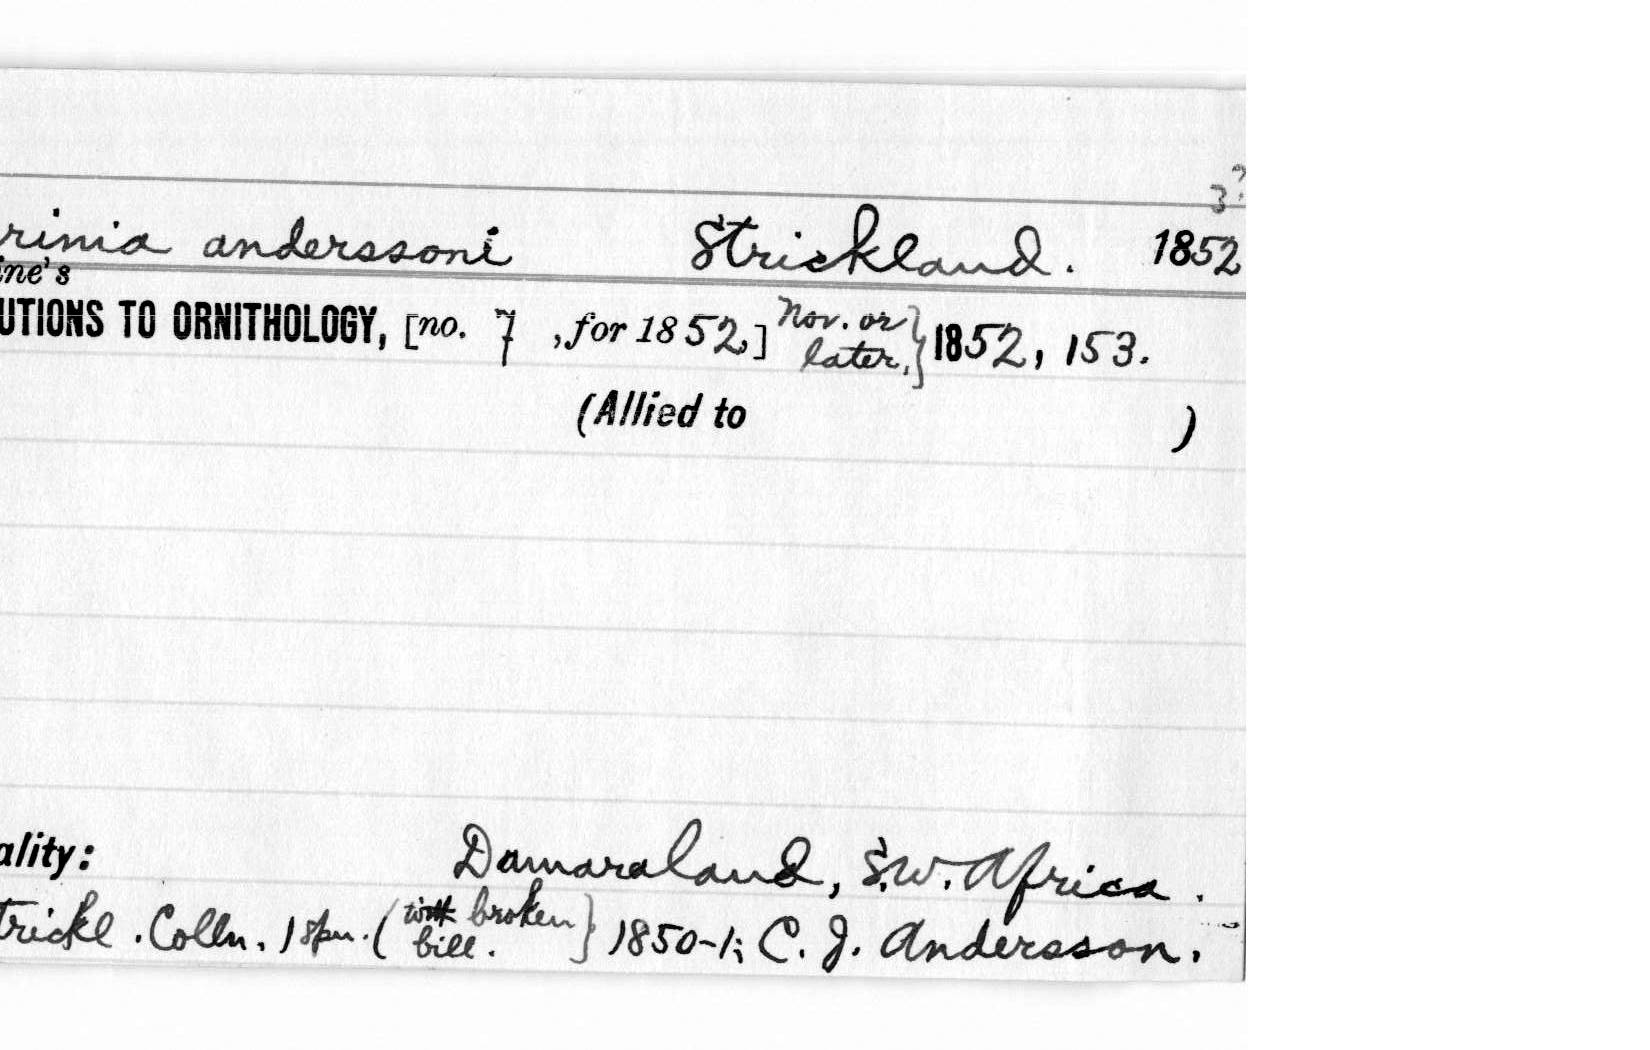 3?
rinia anderssoni Strickland. 1852
ine's
UTIONS TO ORNITHOLOGY, [no. 7 , for 1852,] Nov. or later, } 1852, 153.
(Allied to )
ality: Damaraland, S.W. Africa.
trickl. Colln. 1 spn. (with broken bill. } 1850-1; C. J. Andersson.